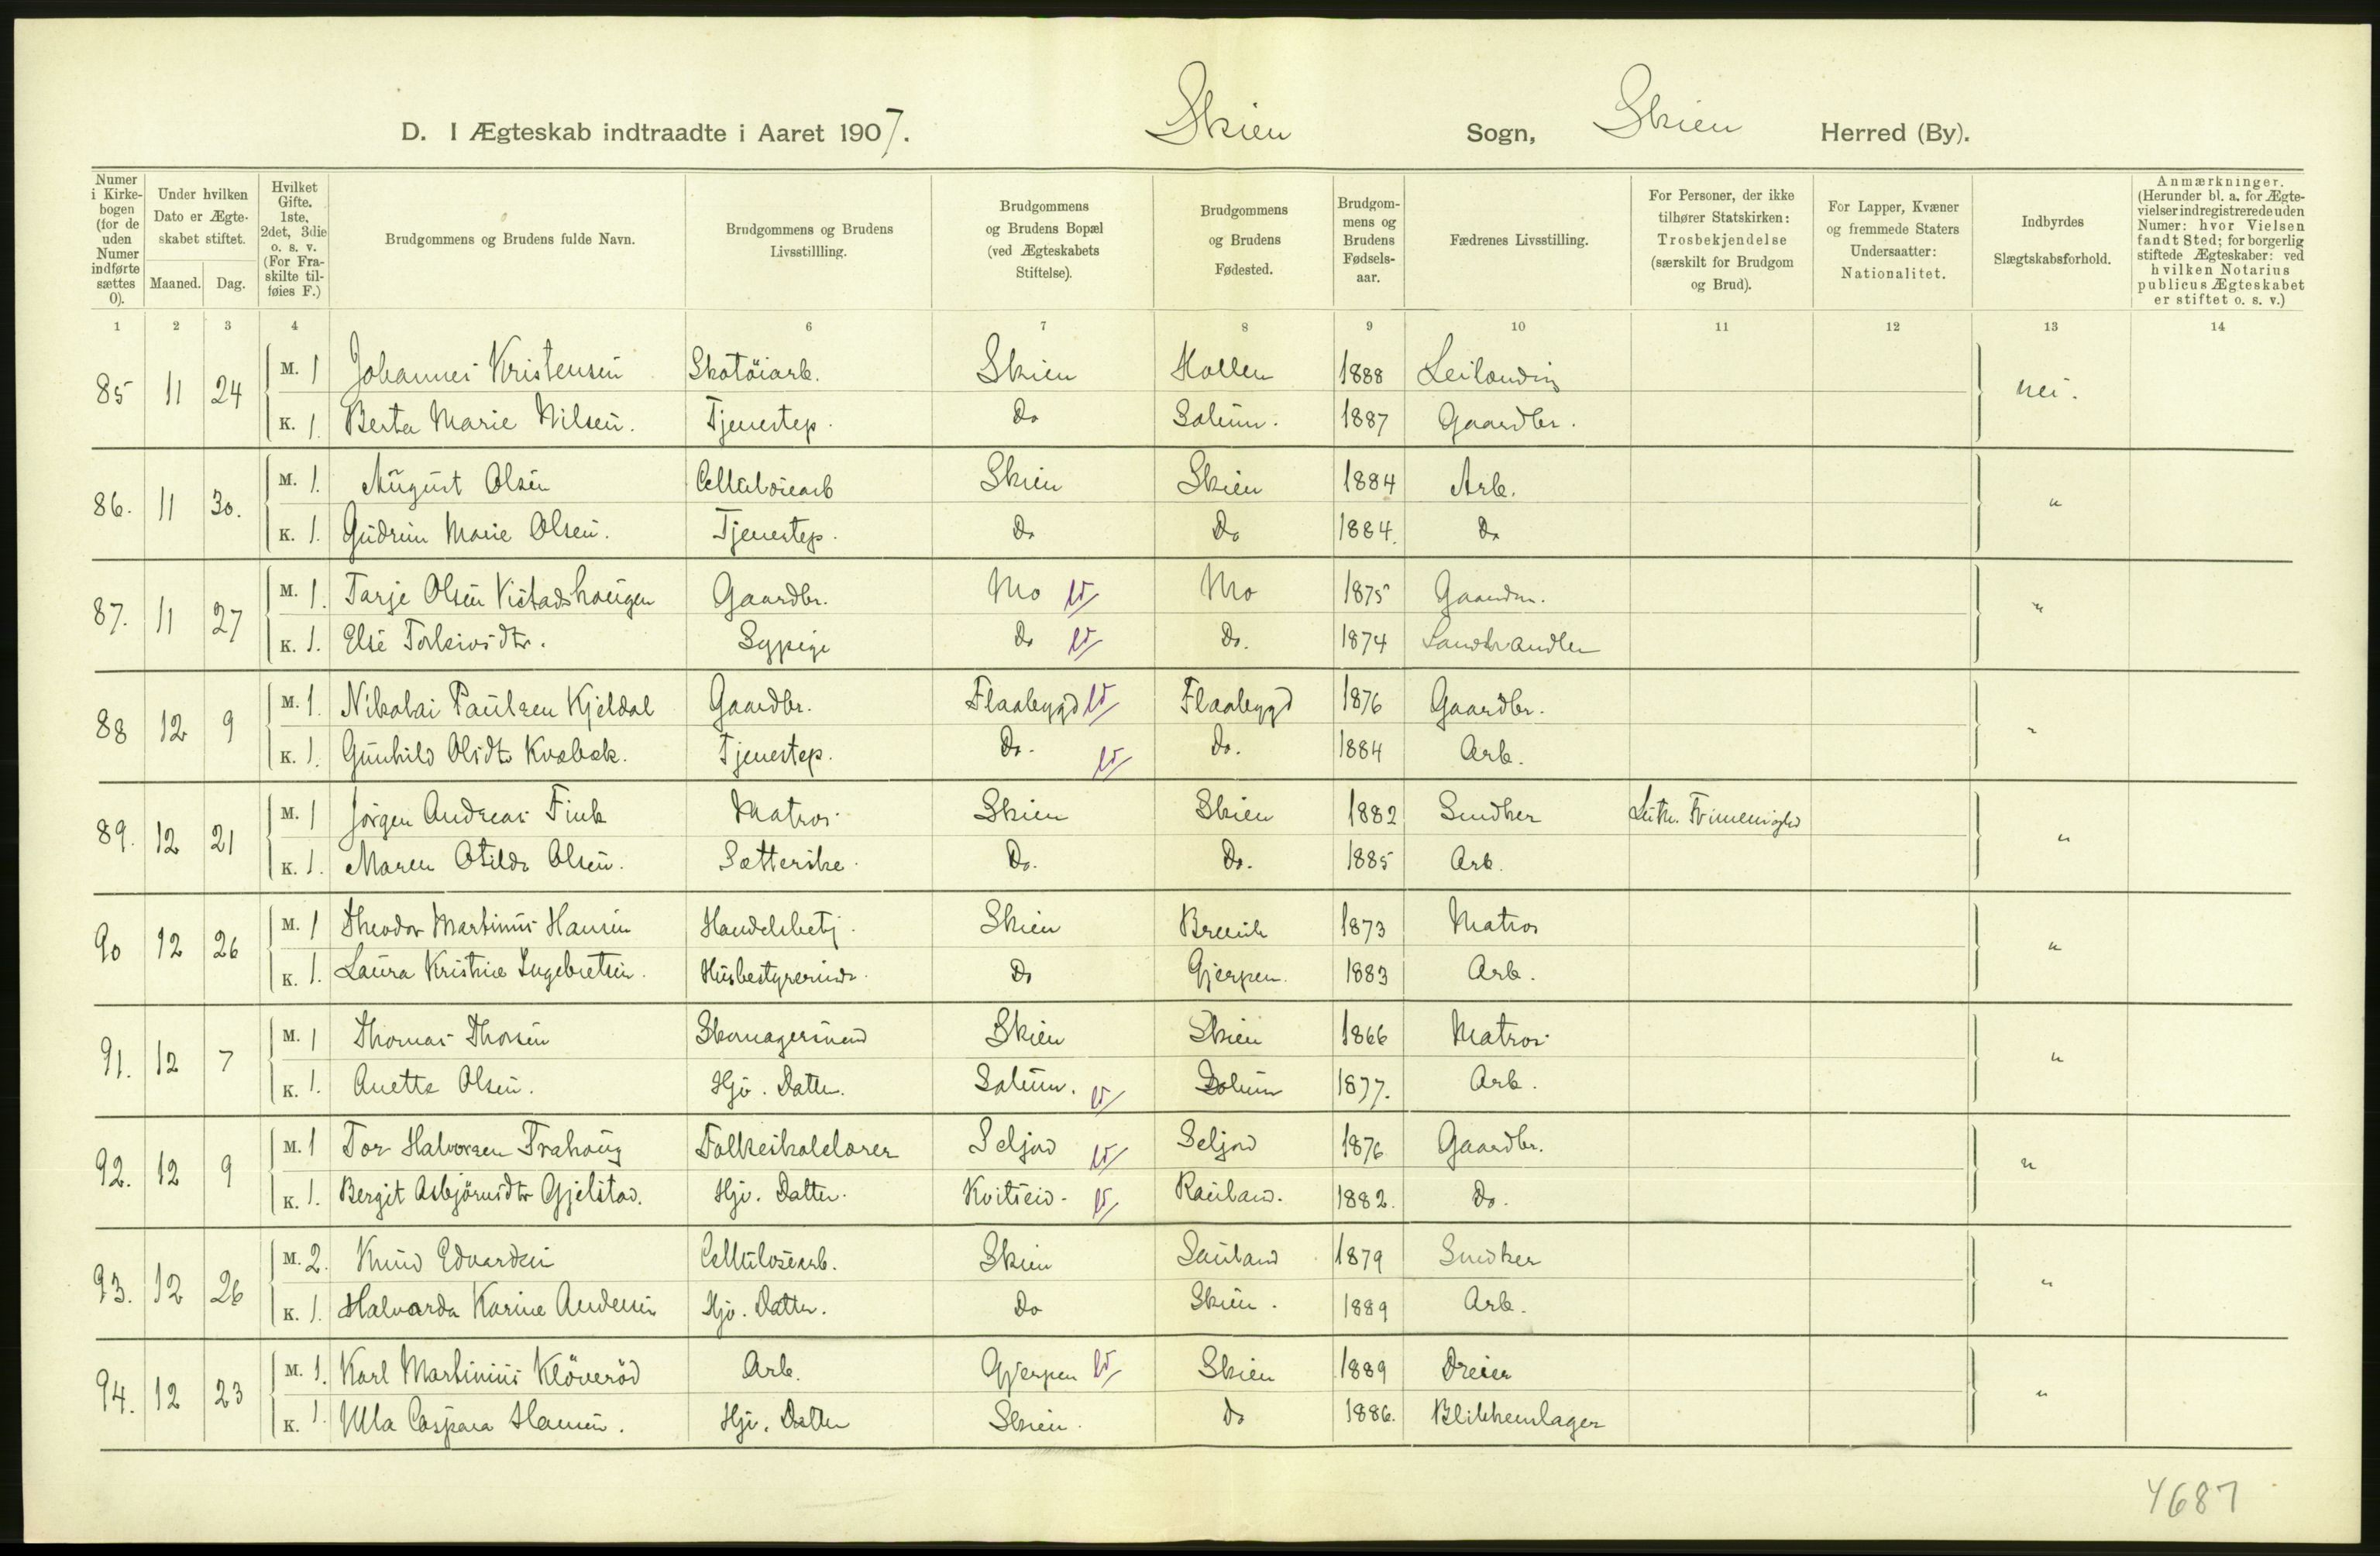 D. I Ægteskab indtraadte i Aaret 1907. Skien Sogn, Skien Herred (By).
Numer i Kirkebogen (for de uden Numer indførte sættes 0).
Under hvilken Dato er Ægteskabet stiftet.
Maaned. Dag.
Hvilket Gifte. 1ste, 2det, 3die o. s. v. (For Fraskilte tilføies F.)
Brudgommens og Brudens fulde Navn.
Brudgommens og Brudens Livsstillling.
Brudgommens og Brudens Bopæl (ved Ægteskabets Stiftelse).
Brudgommens og Brudens Fødested.
Brudgommens og Brudens Fødselsaar.
Fædrenes Livsstilling.
For Personer, der ikke tilhører Statskirken: Trosbekjendelse (særskilt for Brudgom og Brud).
For Lapper, Kvæner og fremmede Staters Undersaatter: Nationalitet.
Indbyrdes Slægtskabsforhold.
Anmærkninger. (Herunder bl. a. for Ægtevielser indregistrerede uden Numer: hvor Vielsen fandt Sted; for borgerlig stiftede Ægteskaber: ved hvilken Notarius publicus Ægteskabet er stiftet o. s. v.)
1 2 3 4 6 7 8 9 10 11 12 13 14
85 11 24 M. 1 Johannes Kristensen Skotöiarb. Skien Hollen 1888 Leilænding nei.
K. 1. Berta Marie Nilsen. Tjenestep. Do Solum. 1887 Gaardbr.
86. 11 30. M. 1. August Olsen Cellulosearb Skien Skien 1884 Arb. "
K. 1. Gudrun Marie Olsen. Tjenestep. Do Do 1884. Do
87. 11 27 M. 1. Tarje Olsen Vistadhaugen Gaardbr. Mo Mo 1875 "
K. 1. Else Torleivsdtr. Sypige Do Do. 1874 Landhandler
88 12 9 M. 1. Nikolai Paulsen Kjeldal Gaardbr. Flaabygd Flaabygd 1876 Gaardbr. "
K. 1. Gunhild Olsdtr Kvæbæk. Tjenestep. Do. Do. 1884 Arb.
89. 12 21 M. 1 Jörgen Andreas Fink Matros Skien Skien 1882 Snedker Luth. Frimenighed "
K. 1. Maren Otilde Olsen. Sætterske. Do. Do. 1885 Arb.
90 12 26 M. 1 Theodor Martinius Hansen Handelsbetj. Skien Brevik 1873 Matros "
K. 1. Laura Kristine Ingebretsen. Husbestyrerinde. Do Gjerpen. 1883 Arb.
91. 12 7 M. 1 Thomas Thorsen Skomagersvend Skien Skien 1866 Matros "
K. 1. Anette Olsen. Hjv. Datter. Solum. Solum 1877. Arb.
92. 12 9 M. 1 Tor Halvorsen Træhaug Folkeskolelærer Seljord Seljord 1876 Gaardbr. "
K. 1. Bergit Asbjörnsdtr Gjelstad. Hjv. Datter. Kvitseid. Rauland. 1882. Do.
93. 12 26 M. 2. Knud Edvardsen Cellulosearb. Skien Sauland 1879 Snedker "
K. 1. Halvarda Karine Andersen Hjv. Datter. Do Skien. 1889 Arb.
94. 12 23 M. 1. Karl Martinius Klöveröd Arb. Gjerpen Skien 1889 Dreier "
K. 1. Ulla Caspara Hansen. Hjv. Datter Skien. Do 1886. Blikkenslager
4687